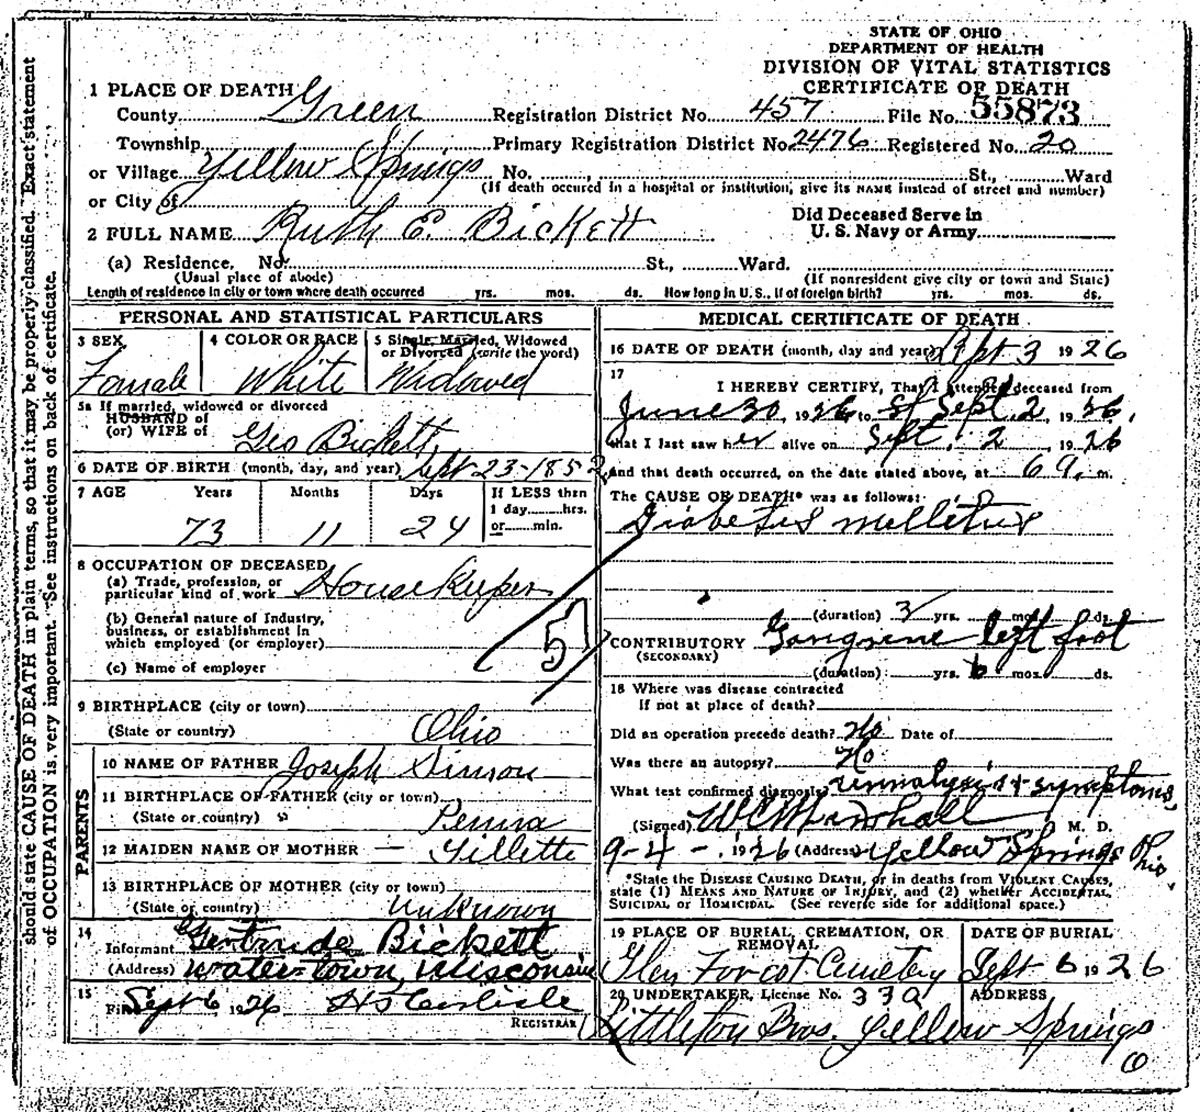 STATE OF OHIO
DEPARTMENT OF HEALTH
DIVISION OF VITAL STATISTICS
CERTIFICATE OF DEATH
1 PLACE OF DEATH
County Green Registration District No. 457 File No. 55873
Township Primary Registration District No. 2476 Registered No. 20
or Village Yellow Springs No. , St., Ward
(If death occured in a hospital or institution, give its NAME instead of street and number)
or City of
2 FULL NAME Ruth E. Bickett
Did Deceased Serve in
U. S. Navy or Army
(a) Residence, No. St., Ward.
(Usual place of abode) (If nonresident give city or town and State)
Length of residence in city or town where death occurred yrs. mos. ds. How long in U. S., if of foreign birth? yrs. mos. ds.
PERSONAL AND STATISTICAL PARTICULARS
3 SEX
Female
4 COLOR OR RACE
White
5 Single, Married, Widowed
or Divorced (write the word)
Widowed
5a If married, widowed or divorced
HUSBAND of
(or) WIFE of Geo Bickett
6 DATE OF BIRTH (month, day, and year) Sept 23-1852
7 AGE Years Months Days
73 11 24
If LESS then
1 day hrs.
or min.
8 OCCUPATION OF DECEASED
(a) Trade, profession, or
particular kind of work Housekeeper
(b) General nature of Industry,
business, or establishment in
which employed (or employer)
(c) Name of employer
5
9 BIRTHPLACE (city or town)
(State or country) Ohio
PARENTS
10 NAME OF FATHER Joseph Sinson
11 BIRTHPLACE OF FATHER (city or town)
(State or country) Penna
12 MAIDEN NAME OF MOTHER — Gillette
13 BIRTHPLACE OF MOTHER (city or town)
(State or country) Unknown
14
Informant Gertride Bickett
(Address) Watertown, Wisconsin
15
Filed Sept 6 1926 H S Carlisle
REGISTRAR
MEDICAL CERTIFICATE OF DEATH
16 DATE OF DEATH (month, day and year) Sept 3 1926
17
I HEREBY CERTIFY, That I attended deceased from
June 30, 1926 to Sept. 2, 1926,
that I last saw her alive on Sept. 2, 1926
And that death occurred, on the date stated above, at 6 a. m.
The CAUSE OF DEATH* was as follows:
Diabetes mellitus
(duration) 3 yrs. mos. ds.
CONTRIBUTORY Gangrene left foot
(SECONDARY)
(duration) yrs. 6 mos. ds.
18 Where was disease contracted
If not at place of death?
Did an operation precede death? No Date of
Was there an autopsy? No
What test confirmed diagnosis? urinalysis & symptoms
(Signed) W C Marshall M. D.
9-4-, 1926 (Address) Yellow Springs Ohio
*State the DISEASE CAUSING DEATH, or in deaths from VIOLENT CAUSES,
state (1) MEANS AND NATURE OF INJURY, and (2) whether ACCIDENTAL,
SUICIDAL or HOMICIDAL. (See reverse side for additional space.)
19 PLACE OF BURIAL, CREMATION, OR
REMOVAL
Glen Forest Cemetery
DATE OF BURIAL
Sept 6 1926
20 UNDERTAKER, License No. 339
ADDRESS
Littleton Bros. Yellow Springs
O
should state CAUSE OF DEATH in plain terms, so that it may be properly classified. Exact statement
of OCCUPATION is very important. See instructions on back of certificate.